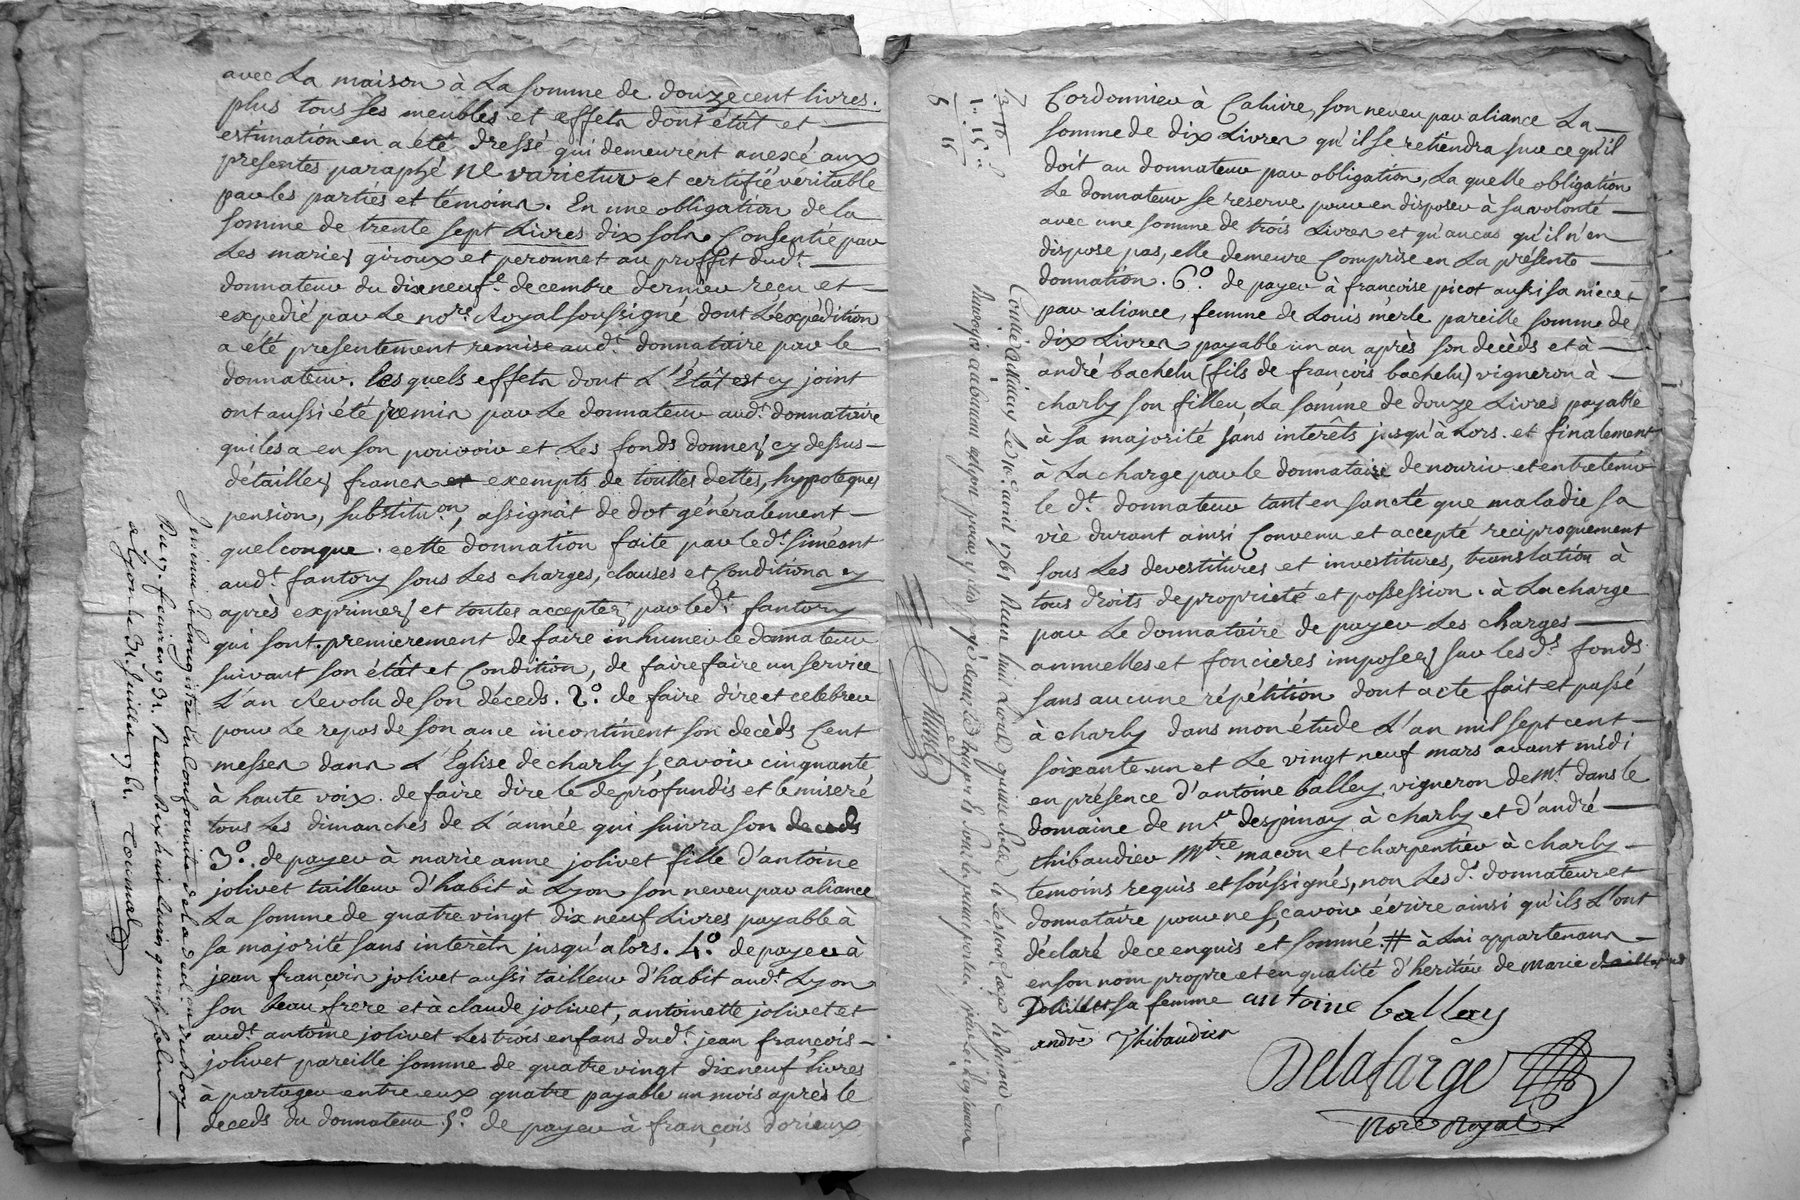 avec La maison à La somme de douze cent livres.
plus tous ses meubles et effets dont état et
estimation en a eté dressé qui demeurent anexé aux
presentes paraphé ne varietur et certifié véritable
par les parties et témoins. En une obligation de la
somme de trente sept Livres dix sols Consentie par
Les mariés giroux et peronnet au proffit dud.t
donnateur du dix neuf.e decembre dernier recu et
expedié par Le no.re Royal soussigné dont L'expédition
a eté presentement remise aud.t donnataire par le
donnateur. lesquels effets dont L'Etât est cy joint
ont aussi été remis par Le donnateur aud.t donnataire
qui les a en son pouvoir et Les fonds donnes cy dessus
détaillés francs et exempts de touttes dettes, hypoteques
pension, substitu.on, assignât de dot généralement
quelconque. cette donnation faite par le d.t siméant
aud.t fantory sous Les charges, clauses et Conditions cy
après exprimés et toutes acceptés par led.t fantory
qui sont. premierement de faire inhumer le donnateur
suivant son état et Condition, de faire faire un service
L'an Revolu de son déceds. 2.o de faire dire et celebrer
pour Le repos de son ame incontinent son decèds Cent
messes dans L'Église de charly sçavoir cinquante
à haute voix. de faire dire le deprofundis et le miseré
tous Les dimanches de L'année qui suivra son deceds
3.o de payer à marie anne jolivet fille d'antoine
jolivet tailleur d'habit à Lyon son neveu par aliance
La somme de quatre vingt dix neuf Livres payable à
sa majorité sans interêts jusqu'alors. 4.o de payer à
jean françois jolivet aussi tailleur d'habit aud.t Lyon
son beau frere et à claude jolivet, antoinette jolivet et
aud.t antoine jolivet Les trois enfans dud.t jean françois
jolivet pareille somme de quatre vingt dix neuf livres
à partager entre eux quatre payable un mois après le
deceds du donnateur. 5.o de payer à françois dorieux
Du 17. fevrier 1731. Reçu dix huit livres quinze sols
a Lyon le 31. juillet 1761.
Cordonnier à Caluire, son neveu par aliance La
somme de dix Livres qu'il se retiendra sur ce qu'il
doit au donnateur par obligation, La quelle obligation
Le donnateur se reserve pour en disposer à sa volonté
avec une somme de trois Livres et qu'au cas qu'il n'en
dispose pas, elle demeure Comprise en La présente
donnation. 6.o de payer à françoise picot aussi sa niece
par aliance, femme de Louis merle pareille somme de
dix Livres payable un an après son decèds et à
andré bachelu (fils de françois bachelu) vigneron à
charly son filleu, La somme de douze Livres payable
à sa majorité sans interêts jusqu'à Lors. et finalement
à La charge par le donnataire de nourir et entretenir
le d.t donnateur tant en sancté que maladie sa
vie durant ainsi Convenu et accepté reciproquement
sous Les devestitures et investitures, translation à
tous droits de propriété et possession. à La charge
par Le donnataire de payer Les charges
annuelles et foncieres imposées sur les d.s fonds
sans aucune répétition dont acte fait et passé
à charly dans mon étude L'an mil sept cent
soixante un et Le vingt neuf mars avant midi
en présence d'antoine balley vigneron de m.t dans le
domaine de m.r despinay à charly et d'andré
thibaudier M.tre macon et charpentier à charly
temoins requis et soussignés, non Les d.t donnateur et
donnataire pour ne sçavoir écrire ainsi qu'ils L'ont
déclaré de ce enquis et sommé. # à Lui appartenans
en son nom propre et en qualité d'heritier de marie
Jolivet sa femme antoine ballay
andre Thibaudier
Delafarge
No.re Royal